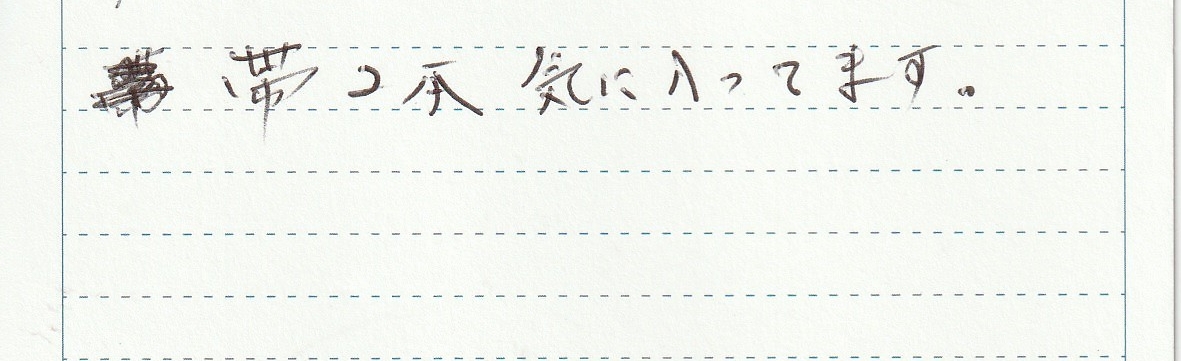 帯2本気に入ってます。